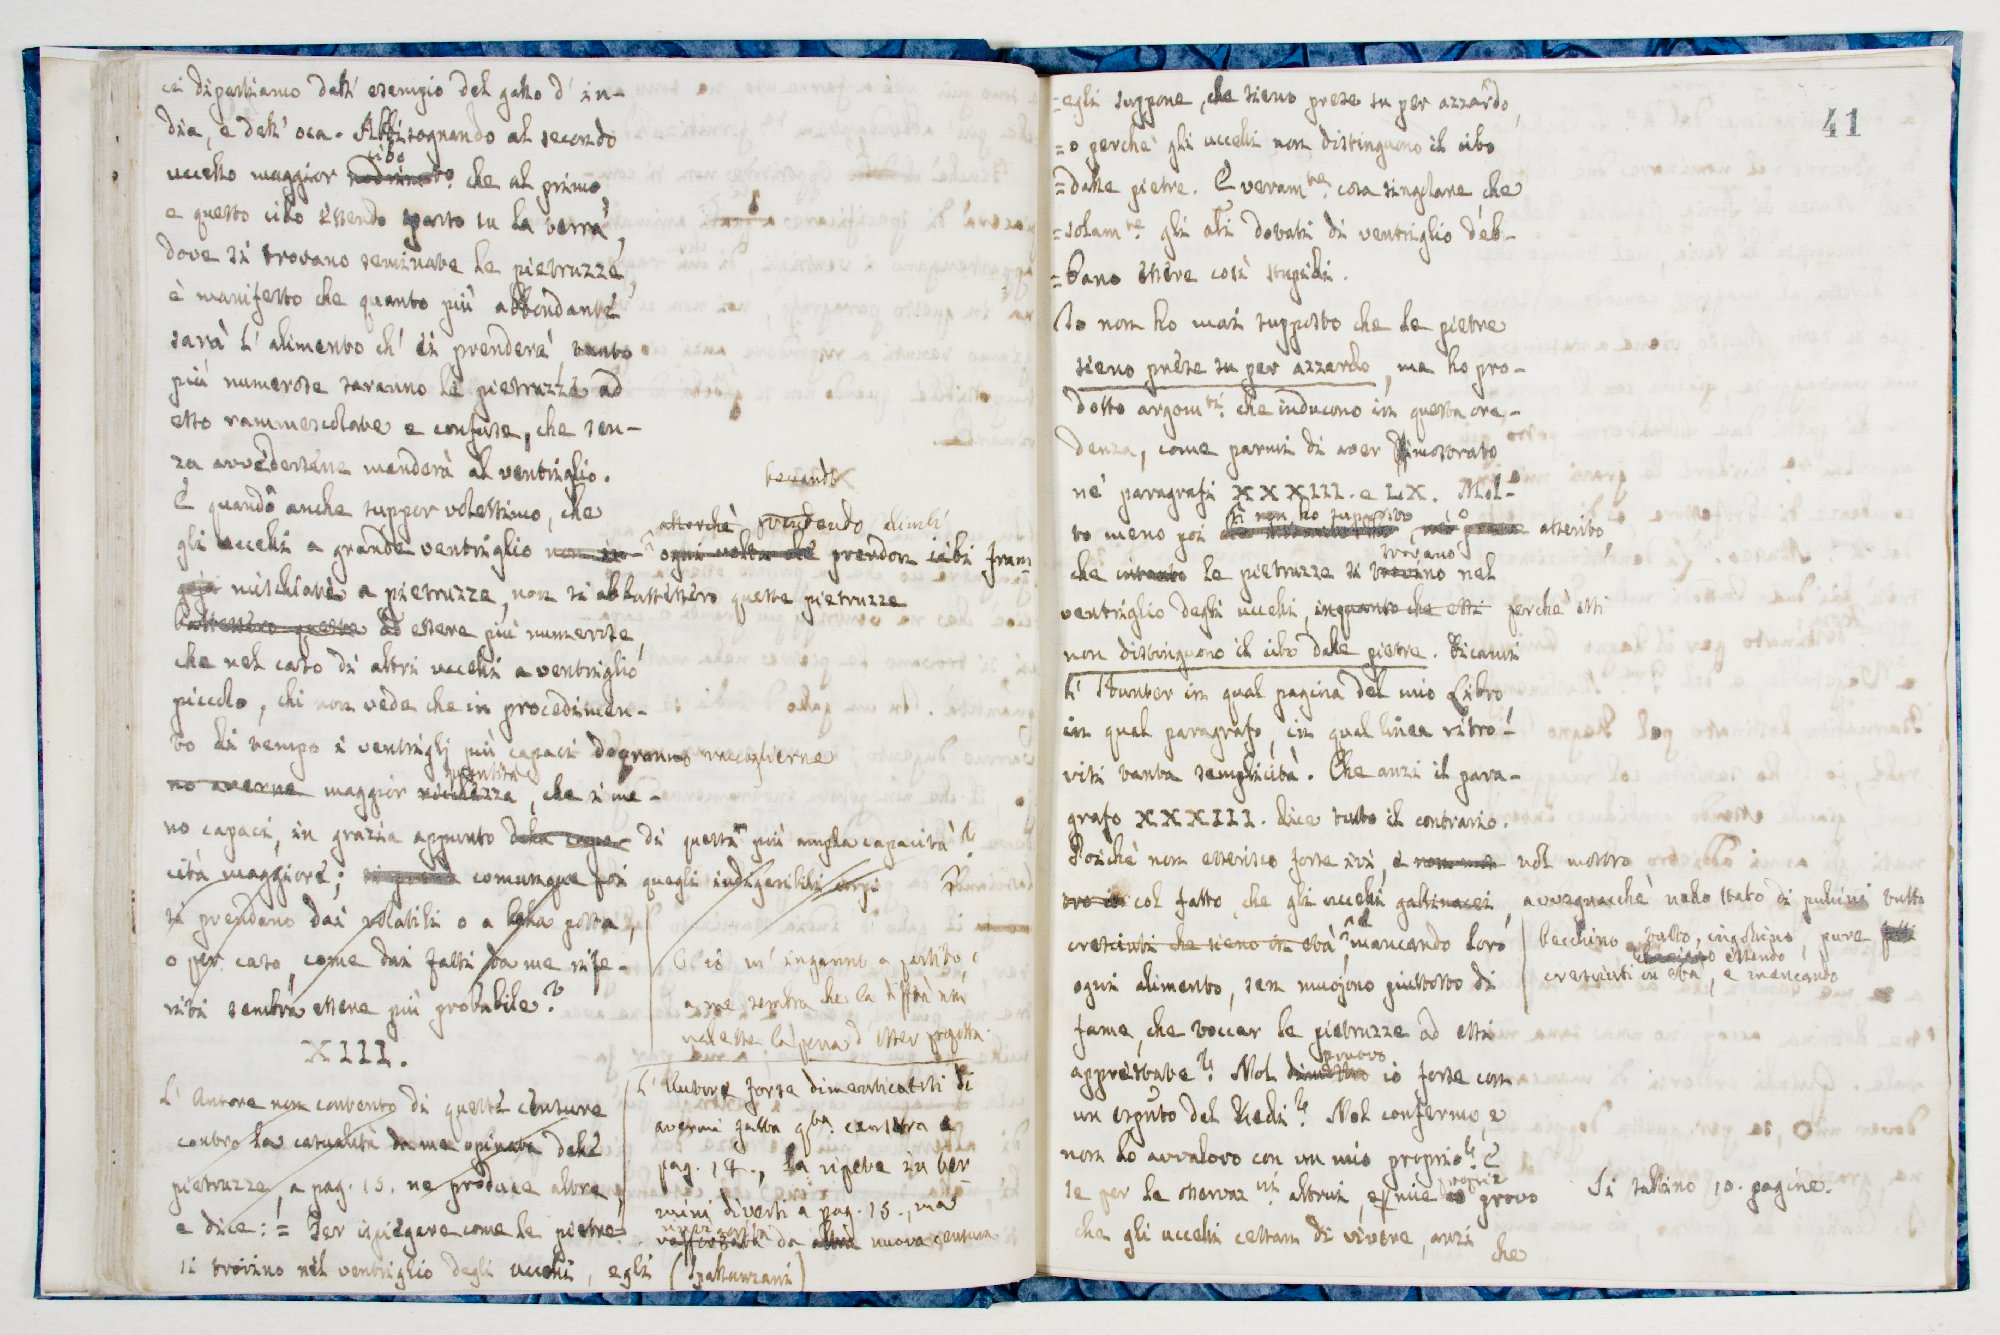 ci dipartiamo dall' esempio del gallo d' in-
dia, e dell' oca. Abbisognando al secondo
cibo
uccello maggior nodrimento che al primo,
e questo cibo essendo sparso su la terra,
dove si trovano seminate le pietruzze,
è manifesto che quanto più abbondante
sarà l' alimento ch' ei prenderà, tanto
più numerose saranno le pietruzze ad
esso rammescolate e confuse, che sen-
za avvedersene manderà al ventriglio.
beccando
E quando anche suppor volessimo, che
allorchè prendendo
gli uccelli a grande ventriglio non in- ogni volta che prendon cibi fram
mischiati a pietruzze, non si abbattessero queste pietruzze
battessero queste ad essere più numerose,
che nel caso di altri uccelli a ventriglio
piccolo, chi non vede che in procedimen-
to di tempo i ventrigli più capaci dovranno raccoglierne
quantità
no averne maggior ricchezza, che i me-
no capaci, in grazia appunto della capa- di questa più ampla capacità?
cità maggiore; comunque poi quegli indigeribili corpi
si prendano dai volatili o a bella posta,
o per caso, come dai fatti da me rife-
riti sembra essere più probabile?
O io m' inganno a partito, o
a me sembra che la
valesse la pena d' esser
XIII.
L' Autore non contento di queste censure
contro la casualità da me opinata delle
pietruzze, a pag. 15. ne produce altre,
e dice: = Per ispiegare come le pietre=
si trovino nel ventriglio degli uccelli, egli (Spallanzani)
L' Autore forse dimenticatosi di
avermi fatta qta censura a
pag. 14., la ripete in ter-
mini diversi a pag. 15., ma
da altra nuova censura
41
=egli suppone, che sieno prese su per azzardo,
=o perchè gli uccelli non distinguono il cibo
=dalle pietre. È veramte cosa singolare che
=solamte gli dotati di ventriglio deb-
=bano essere così stupidi.
Io non ho mai supposto che le pietre
sieno prese su per azzardo, ma ho pro-
dotto argomti che inducono in questa cre-
denza, come parmi di aver dimostrato
ne' paragrafi XXXIII. e LX. Mol-
to meno poi asserito,
trovano
che intanto le pietruzze si trovino nel
ventriglio degli uccelli, inquanto che essi perchè essi
non distinguono il cibo dalle pietre. Dicami
l' Hunter in qual pagina del mio Libro
in qual paragrafo, in qual linea ritro-
visi tanta semplicità. Che anzi il para-
grafo XXXIII. dice tutto il contrario.
Poichè non asserisco forse ivi, e nol mostro
col fatto, che gli uccelli gallinacei, avvegnacchè nello stato di pulcini tutto
cresciuti che sieno in età, mancando loro
becchino tutto, inghino, pure
essendo
cresciuti in età, e mancando
ogni alimento, sen muojono piuttosto di
fame, che toccar le pietruzze ad essi
appressate? Nol
pruovo
dimostro io forse con
un esputo del Redi? Nol confermo e
non ho avvaloro con un mio proprio? E
se per le osservazni altrui, e mie
proprie
provo
che gli uccelli cessan di vivere, anzi
che
Si saltino 10. pagine.